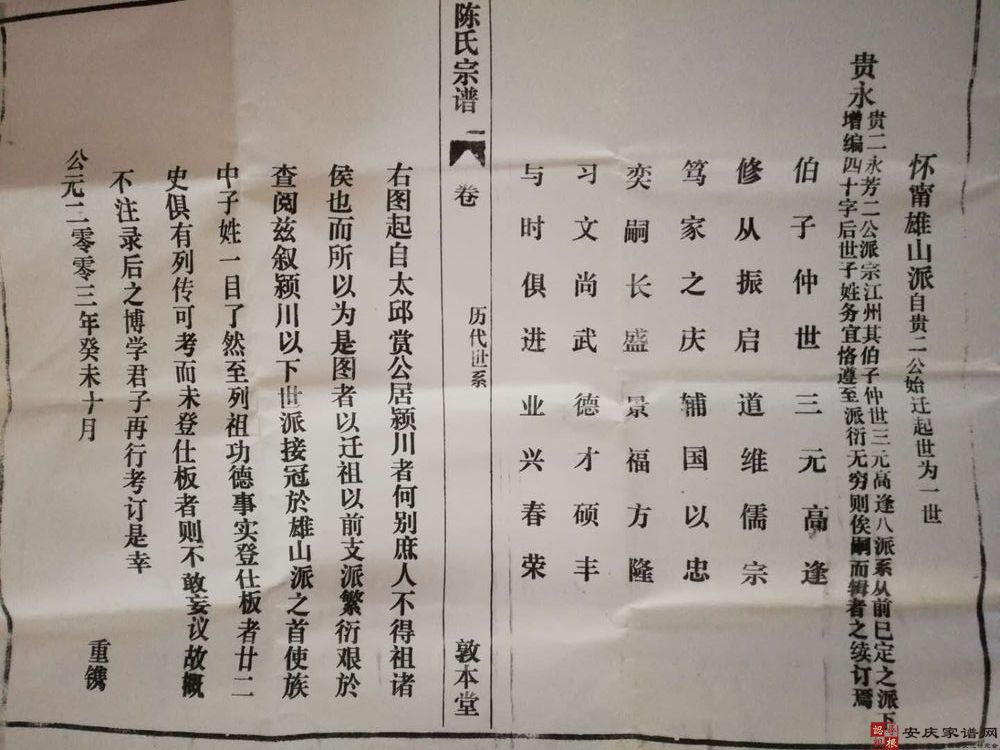 怀甯雄山派自贵二公始迁起世为一世
贵永贵二永芳二公派宗江州其伯子仲世三元高逢八派系从前已定之派下
增编四十字后世子姓务宜恪遵至派衍无穷则俟嗣而辑者之续订焉
伯子仲世三元高逢
修从振启道维儒宗
笃家之庆辅国以忠
奕嗣长盛景福方隆
习文尚武德才硕丰
与时俱进业兴春荣
陈氏宗谱
卷一
历代世系
敦本堂
右图起自太邱赏公居颍川者何别庶人不得祖诸
侯也而所以为是图者以迁祖以前支派繁衍艰於
查阅兹叙颍川以下世派接冠於雄山派之首使族
中子姓一目了然至列祖功德事实登仕板者廿二
史俱有列传可考而未登仕板者则不敢妄议故概
不注录后之博学君子再行考订是幸
公元二零零三年癸未十月
重镌
安庆家谱网